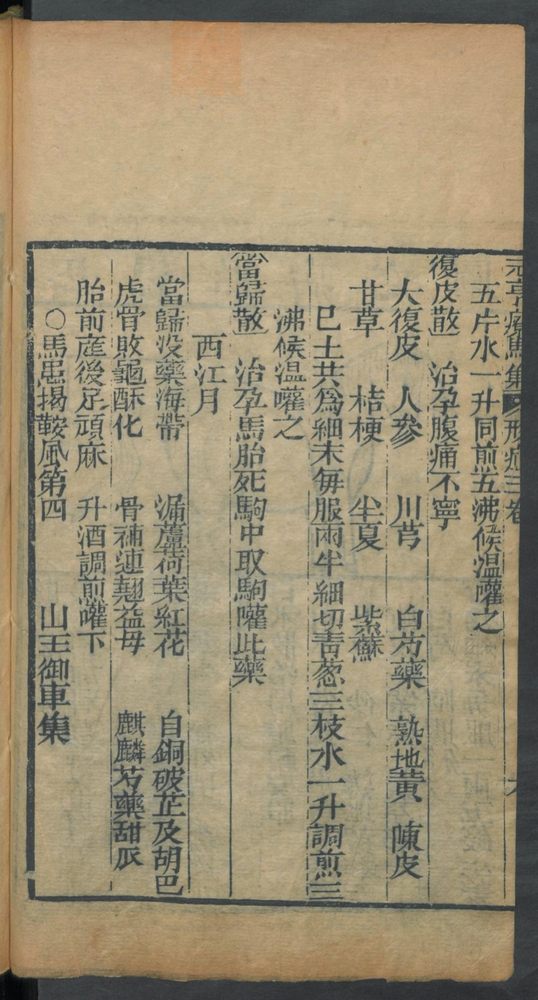 元亨療馬集 形症三卷
五片水一升同煎五沸候温嚾之
復皮散 治孕腹痛不寧
大復皮 人參 川芎 白芍藥 熟地黄 陳皮
甘草 桔梗 半夏 紫蘇
巳土共爲細末每服兩半細切靑葱三枝水一升調煎三
沸候温嚾之
當歸散 治孕馬胎死駒中取駒嚾此藥
西江月
當歸没藥海帶 漏蘆荷葉紅花 自銅破芷及胡巴
虎骨敗龜酥化 骨補連翹益母 麒麟芍藥甜瓜
胎前產後足頑麻 升酒調煎嚾下
○馬患揭鞍風第四 山王御車集